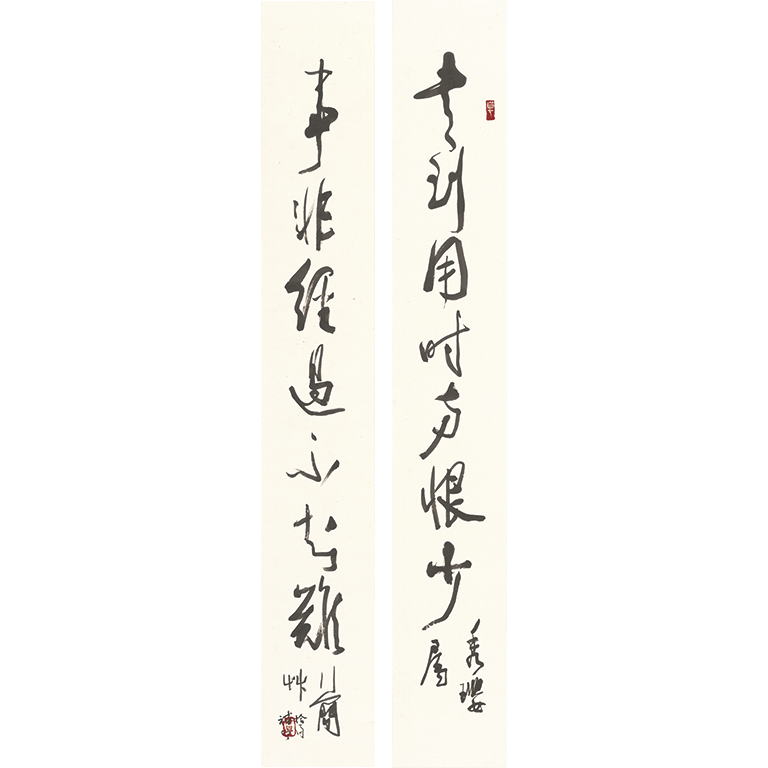 书到用时方恨少
秀瓔
属
事非经过不知難